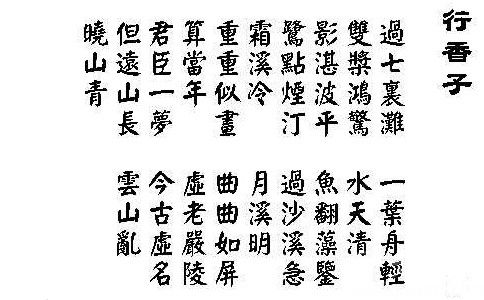 行香子
過七裏灘 一葉舟輕
雙槳鴻驚 水天清
影湛波平 魚翻藻鑒
鷺點煙汀 過沙溪急
霜溪冷 月溪明
重重似畫 曲曲如屏
算當年 虛老嚴陵
君臣一夢 今古虛名
但遠山長 雲山亂
曉山青